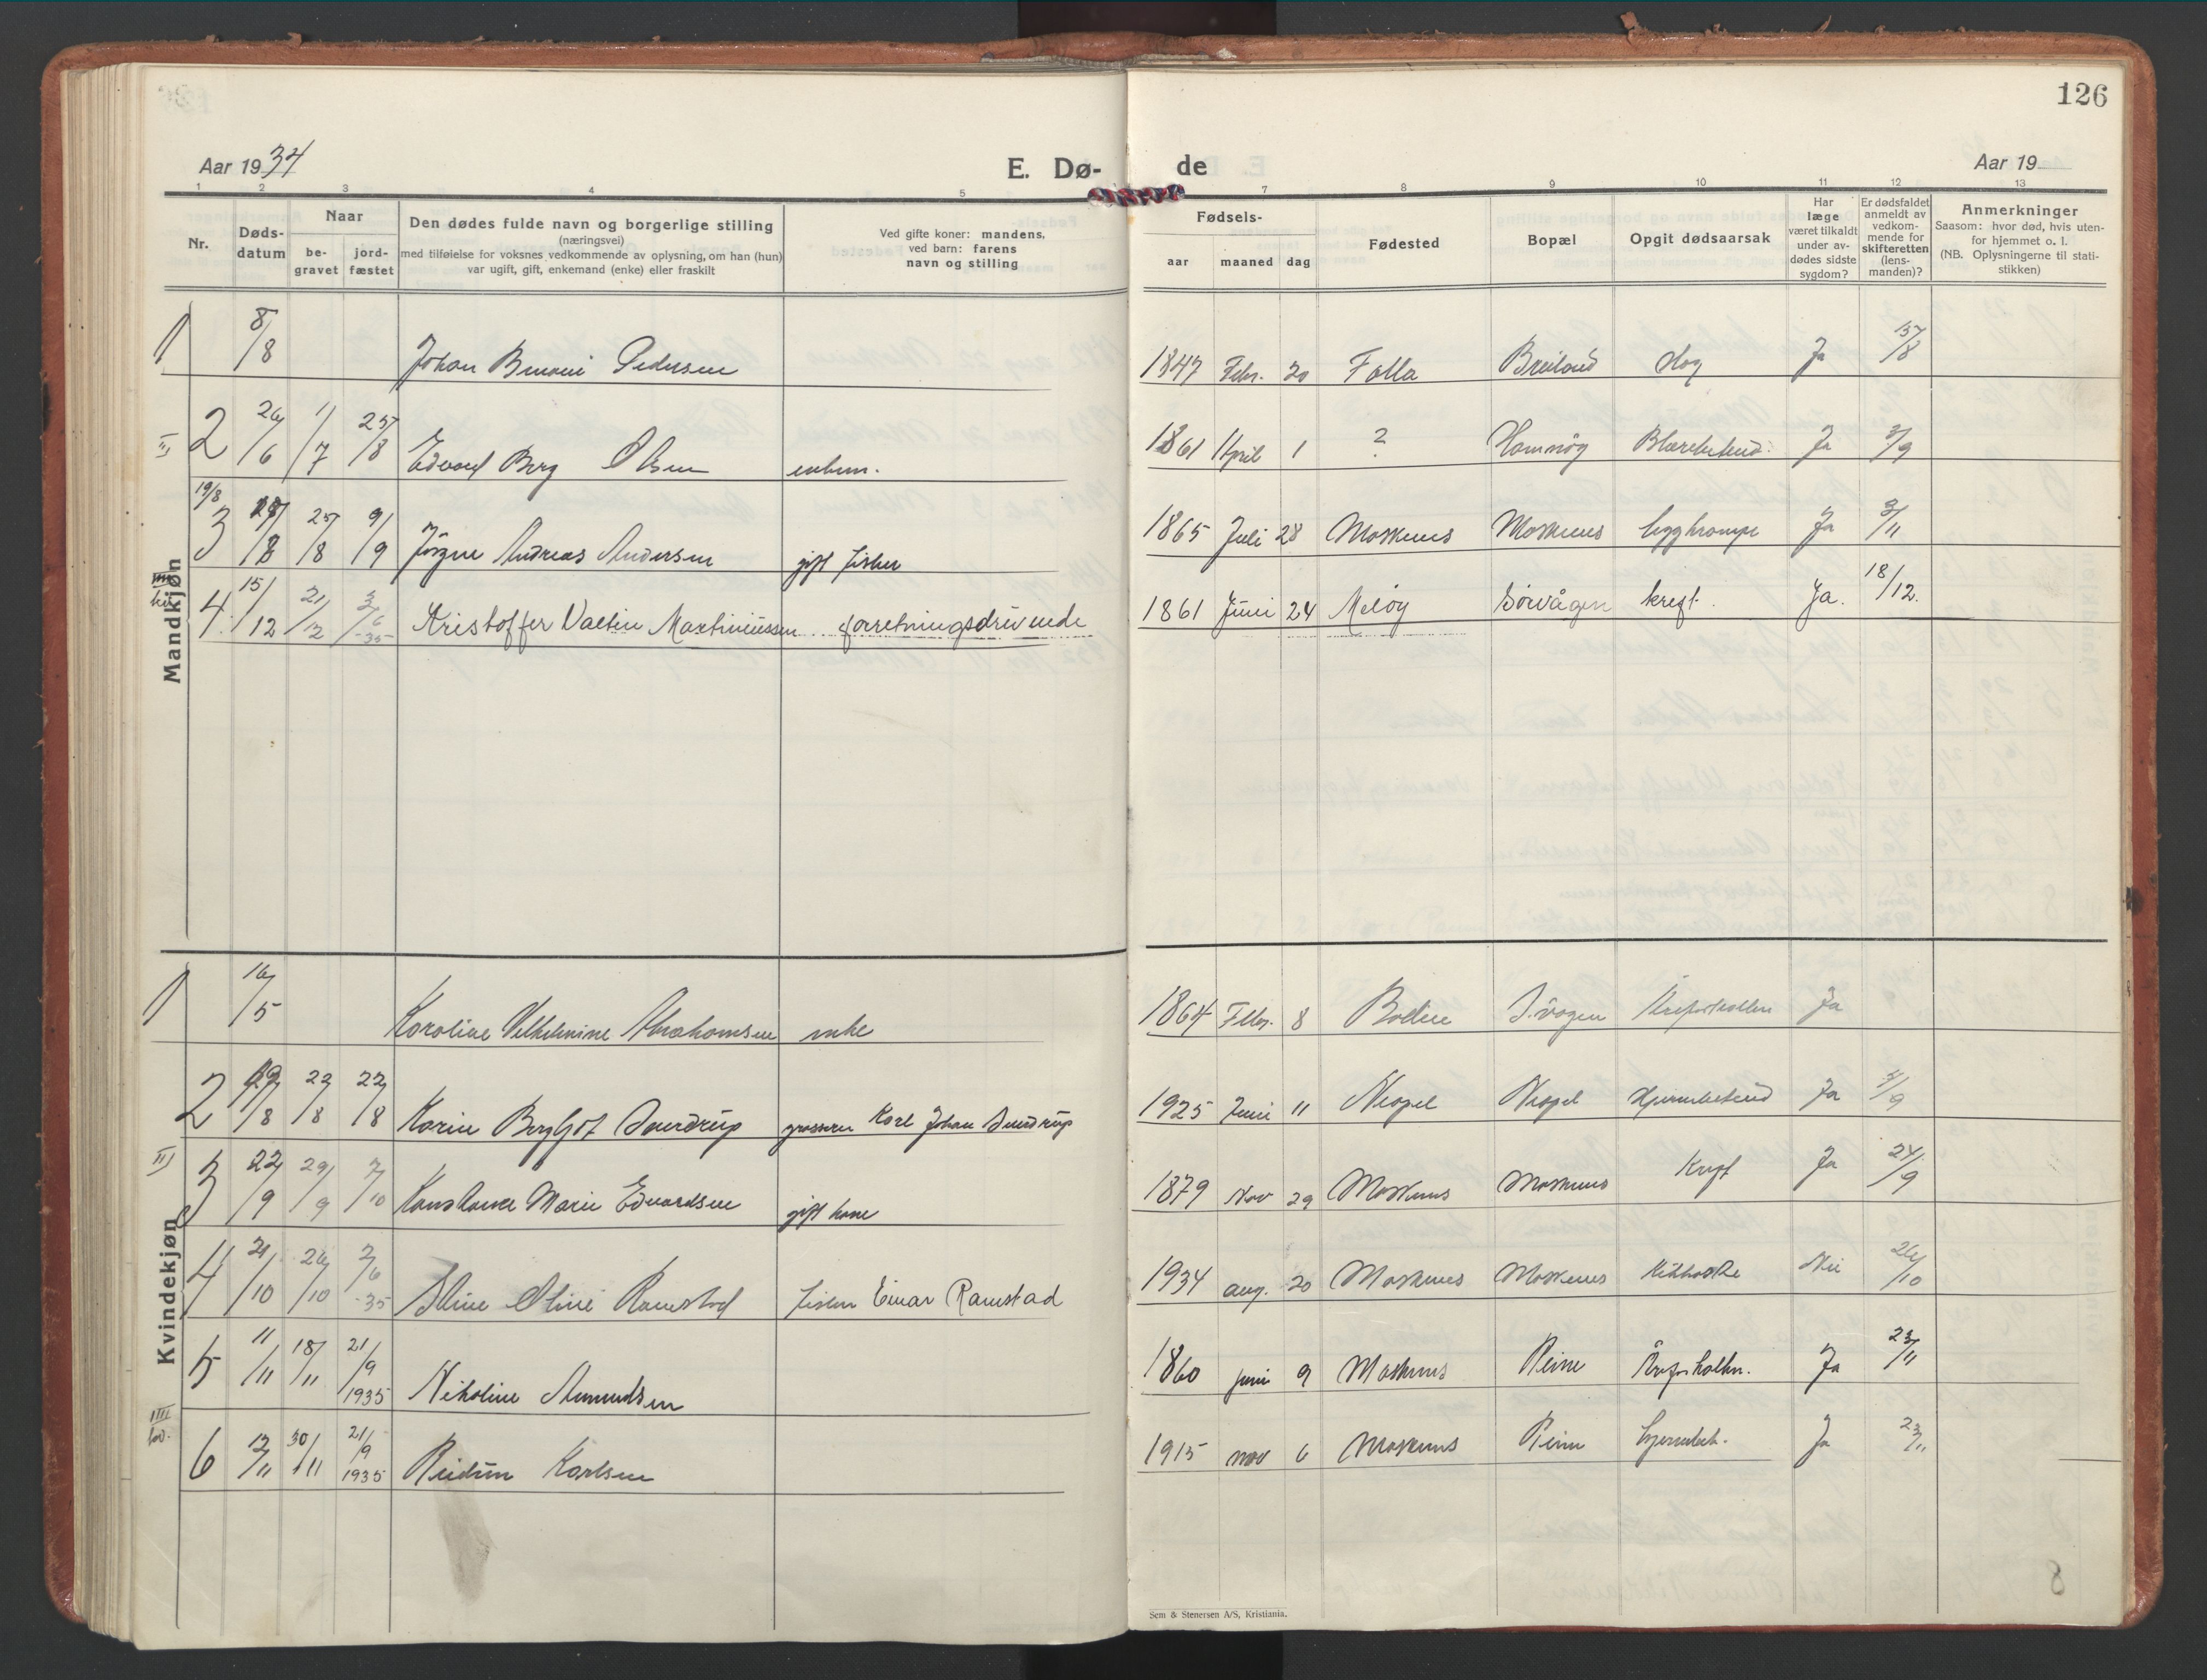 126
Aar 1934
E. Dø-
de
Aar 19
1 2 3 4 5 7 8 9 10 11 12 13
Nr.
Døds-
datum
Naar
be-
gravet
jord-
fæstet
Den dødes fulde navn og borgerlige stilling
(næringsvei)
med tilføielse for voksnes vedkommende av oplysning, om han (hun)
var ugift, gift, enkemand (enke) eller fraskilt
Ved gifte koner: mandens,
ved barn: farens
navn og stilling
Fødsels-
aar maaned dag
Fødested
Bopæl
Opgit dødsaarsak
Har
læge
været tilkaldt
under av-
dødes sidste
sygdom?
Er dødsfaldet
anmeldt av
vedkom-
mende for
skifteretten
(lens-
manden)?
Anmerkninger
Saasom: hvor død, hvis uten-
for hjemmet o. l.
(NB. Oplysningerne til stati-
stikken)
Mandkjøn
1 8/8 Johan Pedersen 1847 Febr. 20 Folla Breiland Slag Ja 15/8
2 26/6 1/7 25/8 Edvard Berg Olsen enkem. 1861 April 1 ? Hamnöy Ja 3/9
19/8
3 18/8 25/8 9/9 Jörgen Andreas Andersen gift fisker 1865 Juli 28 Moskenes Moskenes Ja 3/11
4 15/12 21/12 3/6 -35- Kristoffer Valtin Martiniussen forretningsdrivende 1861 Juni 24 Meløy Sörvågen kreft. Ja. 18/12.
Kvindekjøn
1 16/5 Karoline Vilhelmine Abrahamsen enke 1864 Febr. 8 Bodin S. vågen Ja
2 19/8 22/8 22/8 Karin Bergljot Sverdrup grosserer Karl Johan Sverdrup 1925 Juni 11 Neapel Neapel Ja 3/9
II
3 22/9 29/9 7/10 Konstanse Marie Edvardsen gift kone 1879 Nov 29 Moskenes Moskenes Kreft Ja 24/9
4 21/10 26/10 2/6 -35 Oline Ramstad fisker Einar Ramstad 1934 aug. 20 Moskenes Moskenes Kikhoste Nei 26/10
5 11/11 18/11 21/9 1935 Nikoline Amundsen 1860 juni 9 Moskenes Reine Ja 23/11
6 12/11 30/11 21/9 1935 Reidun Karlsen 1915 nov 6 Moskenes Reine Ja 23/11
Sem & Stenersen A/S, Kristiania.
8